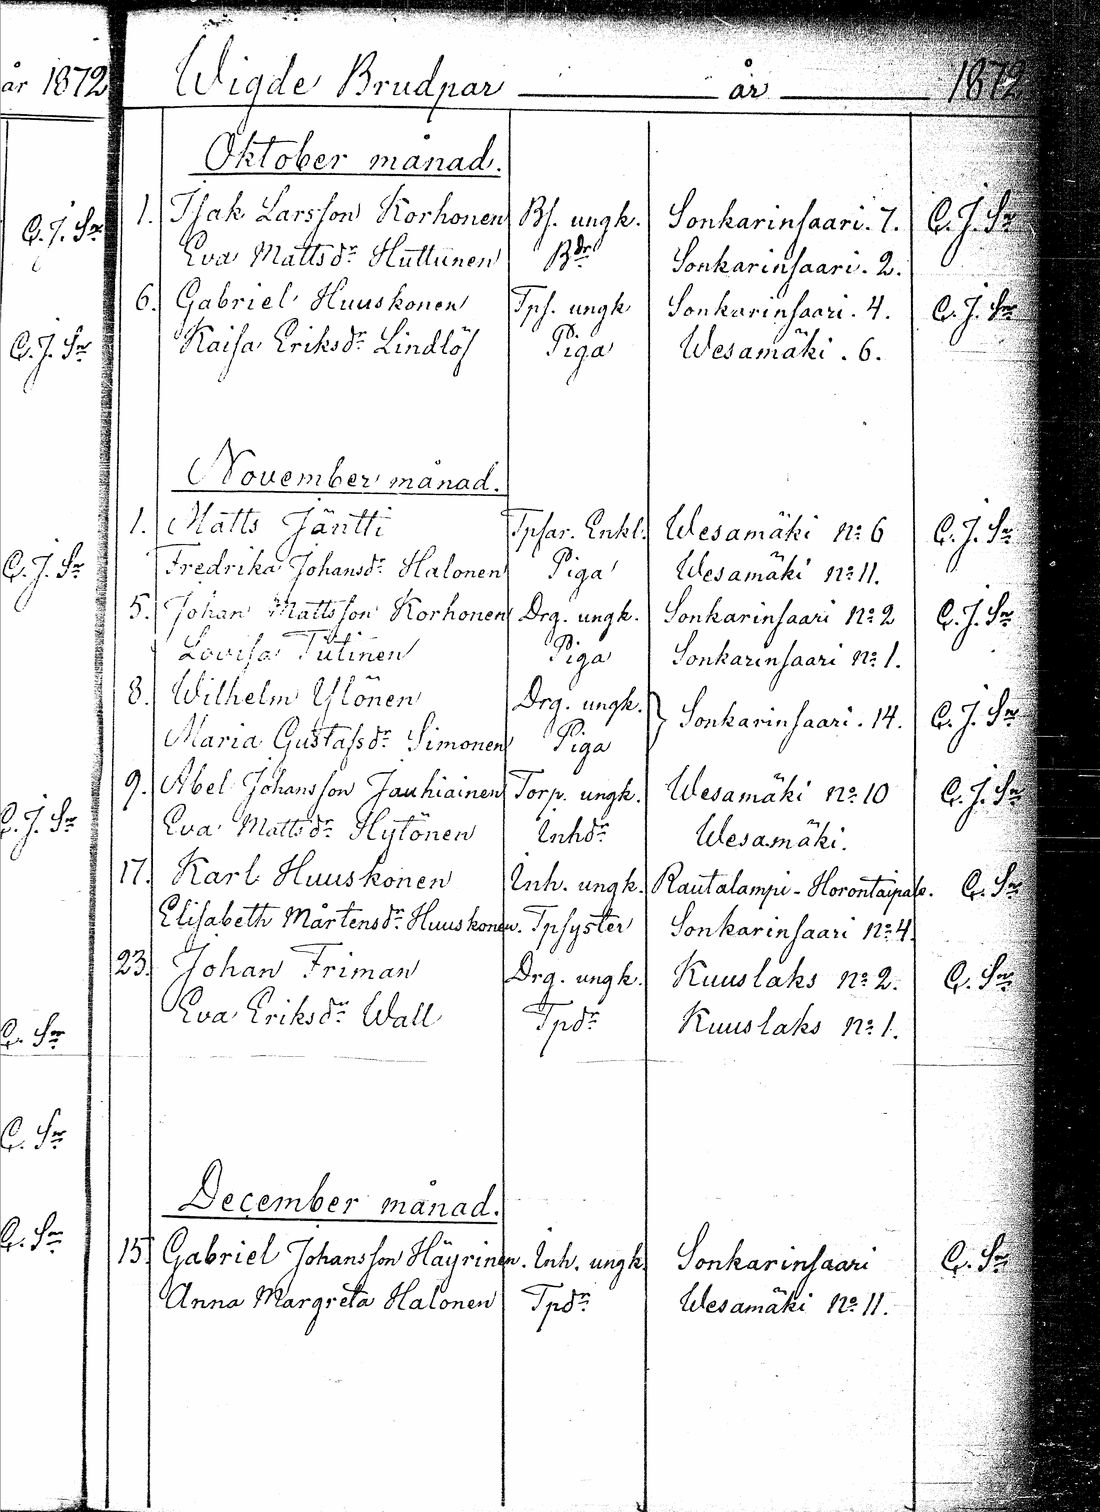 år 1872
Wigde Brudpar år 1872
Oktober månad.
C. J. Sn 1. Isak Larsson Korhonen Bs. ungk. Sonkarinsaari. 7. C. J. Sn
Eva Mattsdr Huttunen Bdr Sonkarinsaari. 2.
6. Gabriel Huuskonen Tps. ungk Sonkarinsaari. 4. C. J. Sn
C. J. Sn Kaisa Eriksdr Lindlöf Piga Wesamäki. 6.
November månad.
1. Matts Jäntti Tpfar. Enkl. Wesamäki No 6 C. J. Sn
C. J. Sn Fredrika Johansdr Halonen Piga Wesamäki No 11.
5. Johan Mattsson Korhonen Drg. ungk. Sonkarinsaari No 2 C. J. Sn
Lovisa Tutinen Piga Sonkarinsaari No 1.
8. Wilhelm Ylönen Drg. ungk. } Sonkarinsaari. 14. C. J. Sn
Maria Gustafsdr Simonen Piga
9. Abel Johansson Jauhiainen Torp. ungk. Wesamäki No 10 C. J. Sn
C. J. Sn Eva Mattsdr Hytönen Inhdr Wesamäki.
17. Karl Huuskonen Inh. ungk. Rautalampi - Horontaipale. C. Sn
Elisabeth Mårtensdr Huuskonen. Tpsyster Sonkarinsaari No 4.
23. Johan Friman Drg. ungk. Kuuslaks No 2. C. Sn
C. Sn Eva Eriksdr Wall Tpdr Kuuslaks No 1.
C. Sn
December månad.
C. Sn 15. Gabriel Johansson Häyrinen. Inh. ungk. Sonkarinsaari C. Sn
Anna Margreta Halonen Tpdr Wesamäki No 11.